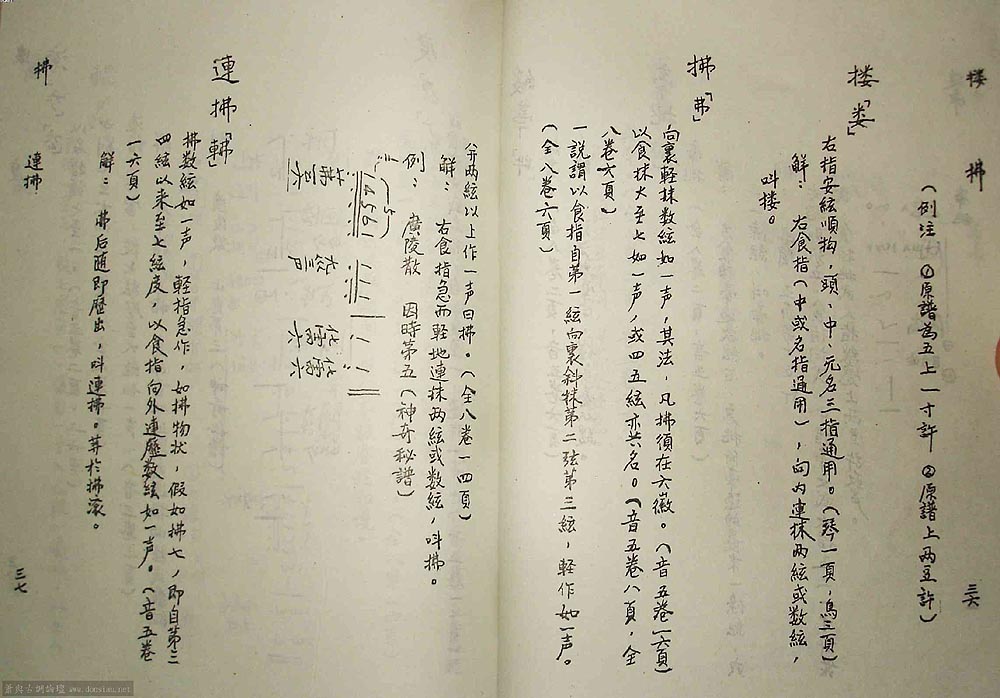 搂　拂
三六
(例注　①原譜為五上一寸許　②原譜上两豆許)
搂「娄」
右指安絃順抅，頭、中、无名三指通用。(琴一頁，烏三頁)
解：　右食指(中或名指通用)，向内連抹两絃或数絃，
叫搂。
拂「弗」
向裏軽抹数絃如一声，其法，凡拂須在六徽。(音五卷一六頁)
以食抹六至七如一声，或四五絃亦共名。(音五卷八頁，全
八卷六頁)
一説謂以食指自第一絃向裏斜抹第二弦第三絃，軽作如一声。
(全八卷六頁)
分开两絃以上作一声曰拂。(全八卷一四頁)
解：　右食指急而軽地連抹两絃或数絃，叫拂。
例：　廣陵散　因時第五(神奇秘譜)
5
1 4 5 6 1
連拂
拂数絃如一声，軽指急作，如拂物状，假如拂七，即自第三
四絃以来至七絃度，以食指向外連歷数絃如一声。(音五卷
一六頁)
解：　拂后随即歷出，叫連拂。并於拂滚。
拂　連拂
三七
蕭與古調論壇 www.donsism.net